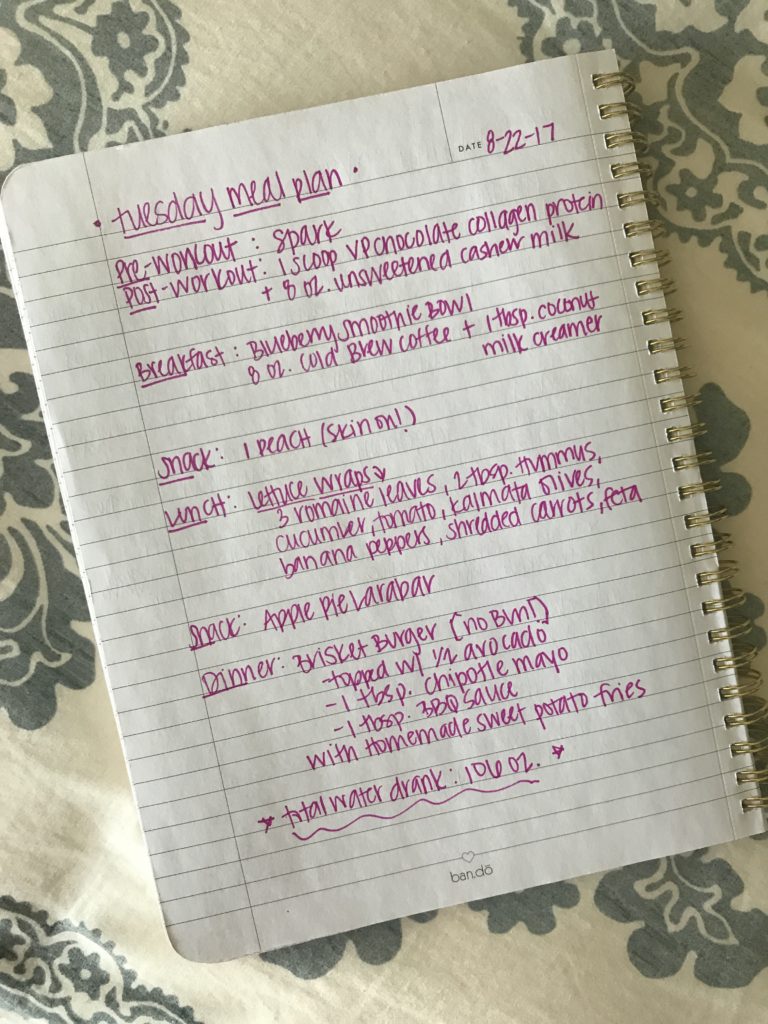 DATE 8-22-17
• tuesday meal plan •
Pre-workout : Spark
Post-workout : 1 scoop VP chocolate collagen protein
+ 8 oz. unsweetened cashew milk
Breakfast : Blueberry smoothie Bowl
8 oz. cold Brew coffee + 1 tbsp. coconut
milk creamer
snack : 1 peach (skin on!)
Lunch : Lettuce wraps
3 romaine leaves, 2 tbsp. hummus,
cucumber, tomato, kalmata olives,
banana peppers, shredded carrots, feta
snack : Apple Pie Larabar
Dinner : Brisket Burger (no Bun!)
-topped w/ 1/2 avocado
-1 tbsp. chipotle mayo
-1 tbsp. BBQ sauce
with Homemade sweet potato fries
★ total water drank : 106 oz. ★
ban.dō